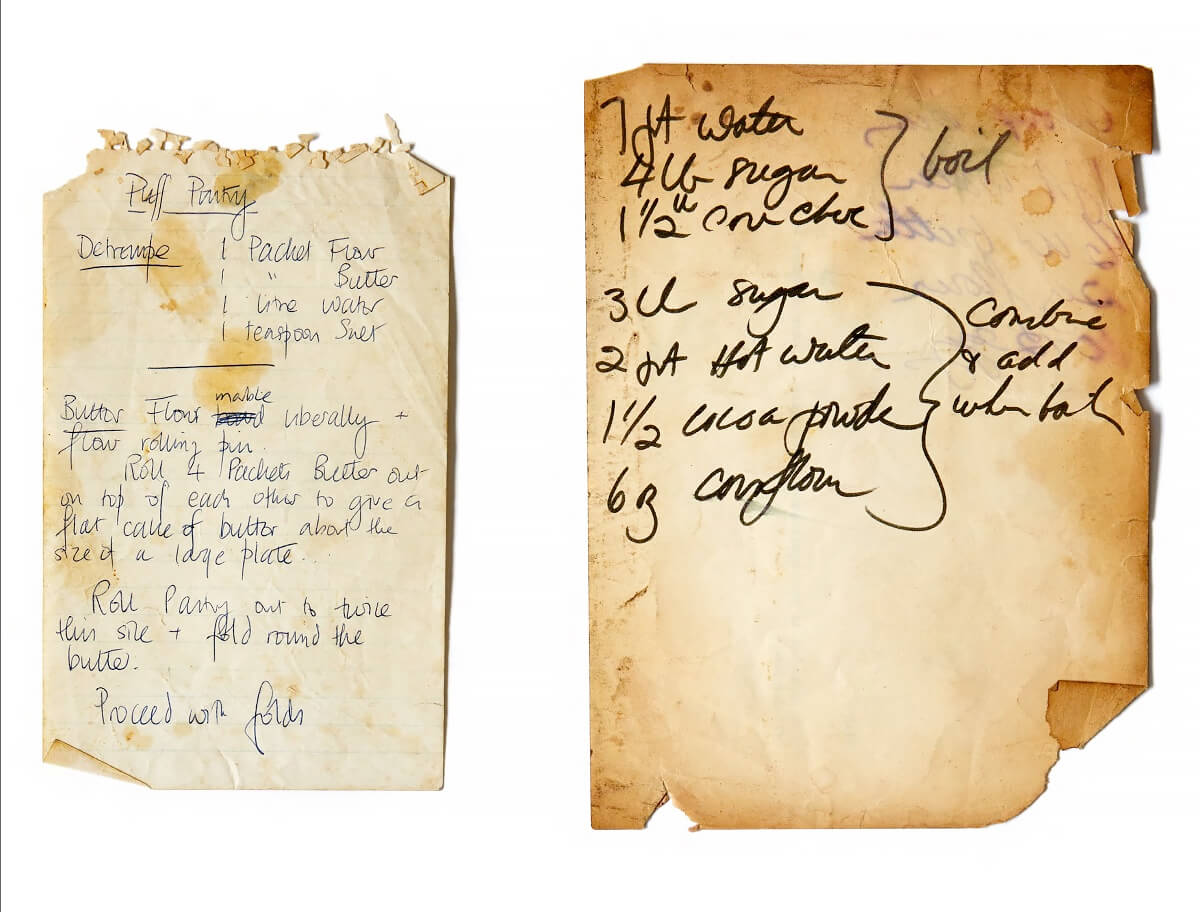 Puff Pastry
Detrempe 1 Packet Flour
1 " Butter
1 litre water
1 teaspoon Suet
marble
Butter Flour liberally +
flour rolling pin.
Roll 4 Packets Butter out
on top of each other to give a
flat cake of butter about the
size of a large plate.
Roll Pastry out to twice
this size + fold round the
butter.
Proceed with folds
7 pt water
4 lb sugar
boil
1 1/2 "
3 lb sugar
2 pt Hot water
1 1/2 cocoa powder
6 oz cornflour
Combine
& add
when boil